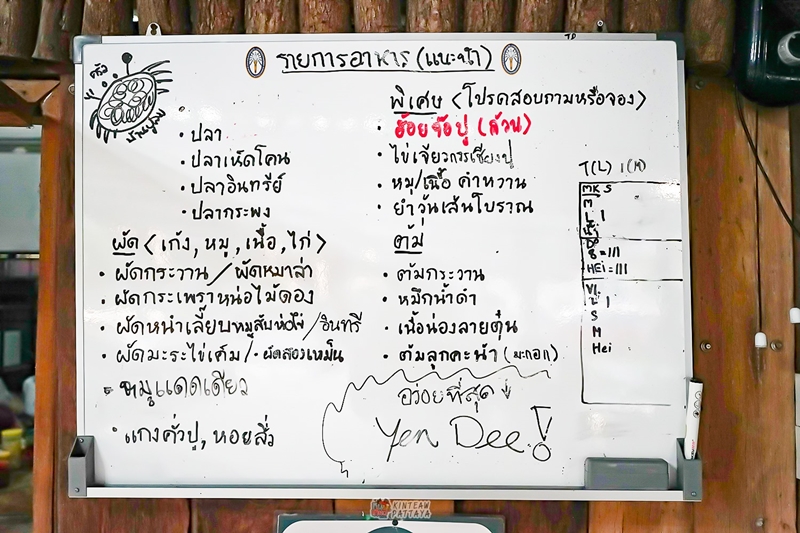 รายการอาหาร (แนะนำ)
ครัว
บ้านปูม้า
• ปลา
• ปลาเห็ดโคน
• ปลาอินทรีย์
• ปลากระพง
ผัด < เก้ง, หมู, เนื้อ, ไก่ >
• ผัดกระวาน / ผัดหมาล่า
• ผัดกระเพราหน่อไม้ดอง
• ผัดหนำเลี๊ยบหมูสับห่อไข่ / อินทรี
• ผัดมะระไข่เค็ม / • ผัดสองเหม็น
• หมูแดดเดียว
• แกงคั่วปู, หอยสิ่ว
พิเศษ < โปรดสอบถามหรือจอง >
• ฮ้อยจ๊อปู (ล้วน)
• ไข่เจียวกรรเชียงปู
• หมู/เนื้อ คำหวาน
• ยำวุ้นเส้นโบราณ
ต้ม
• ต้มกระวาน
• หมึกน้ำดำ
• เนื้อน่องลายตุ๋น
• ต้มลูกคะน้า (มะกอก)
อร่อยที่สุด
Yen Dee!
T(L) 1(M)
MK S
M
L 1
S = III
HEi = III
VL
L 1
S
M
Hei
KINTEAW
PATTAYA